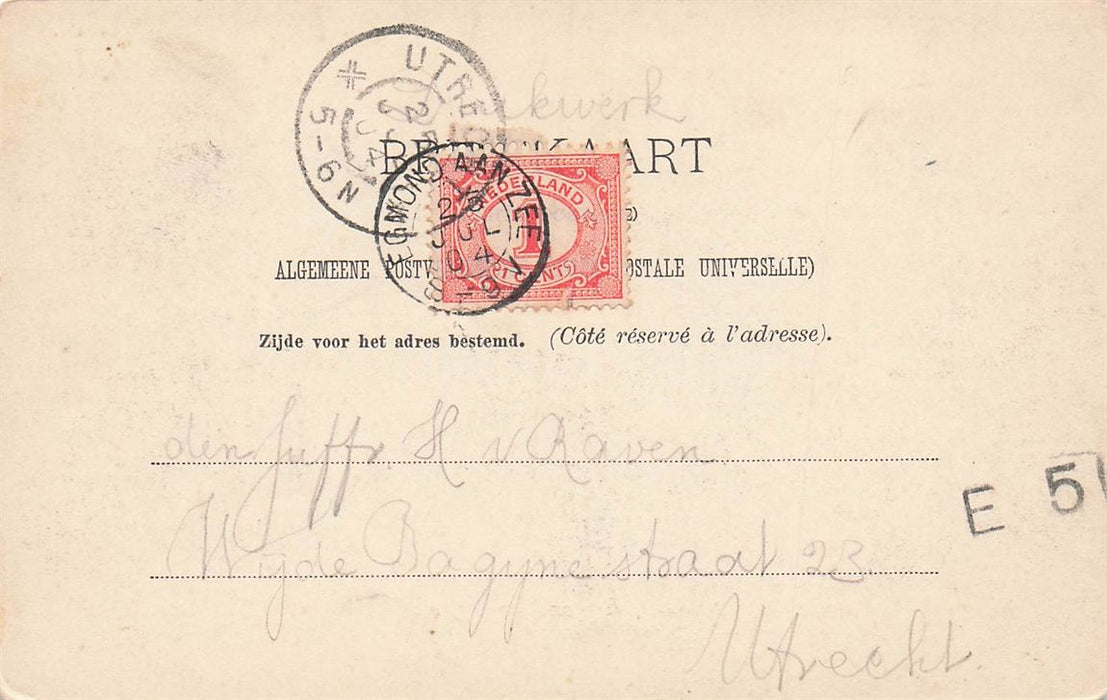 UTRE
5-6N
25 JUL 04
kwerk
BR KAART
EGMOND AAN ZEE
NEDERLAND
1
CENT
ALGEMEENE POSTV OSTALE UNIVERSELLE)
Zijde voor het adres bestemd. (Côté réservé à l'adresse).
den Juffr. H. v Raven.
E 5
Wijde Bagynestraat 23.
Utrecht.